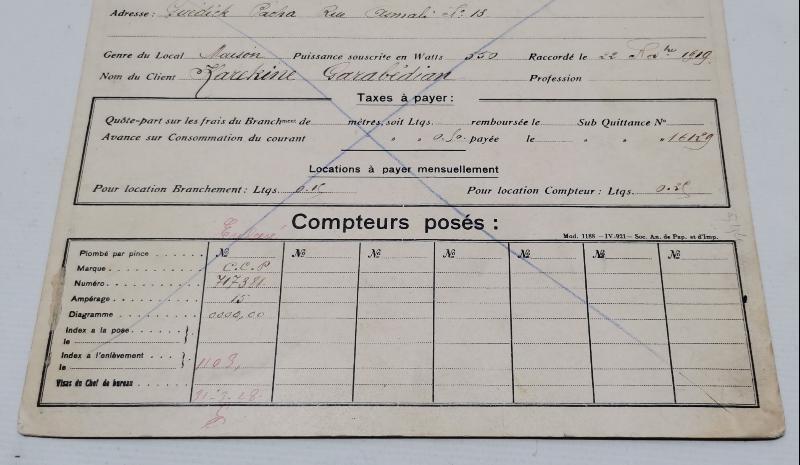 Adresse: Pacha Rue Osmali No 18
Genre du Local Maison Puissance souscrite en Watts 550 Raccordé le 22
Nom du Client Karekine Garabédian Profession
Taxes à payer:
Quôte-part sur les frais du Branchment de mètres, soit Ltqs. remboursée le Sub Quittance No
Avance sur Consommation du courant „ „ 0.50 payée le „ „ „ 16129
Locations à payer mensuellement
Pour location Branchement: Ltqs. 0.15 Pour location Compteur: Ltqs. 0.25
Compteurs posés:
Mod. 1188 —IV-921— Soc. An. de Pap. et d'Imp.
Plombé par pince No No No No No No No
Marque C.C.P
Numéro 717381
Ampérage 15
Diagramme 0000,00
Index a la pose
le
Index a l'enlèvement 1103,
le
Visas du Chef de bureau 31-3-28